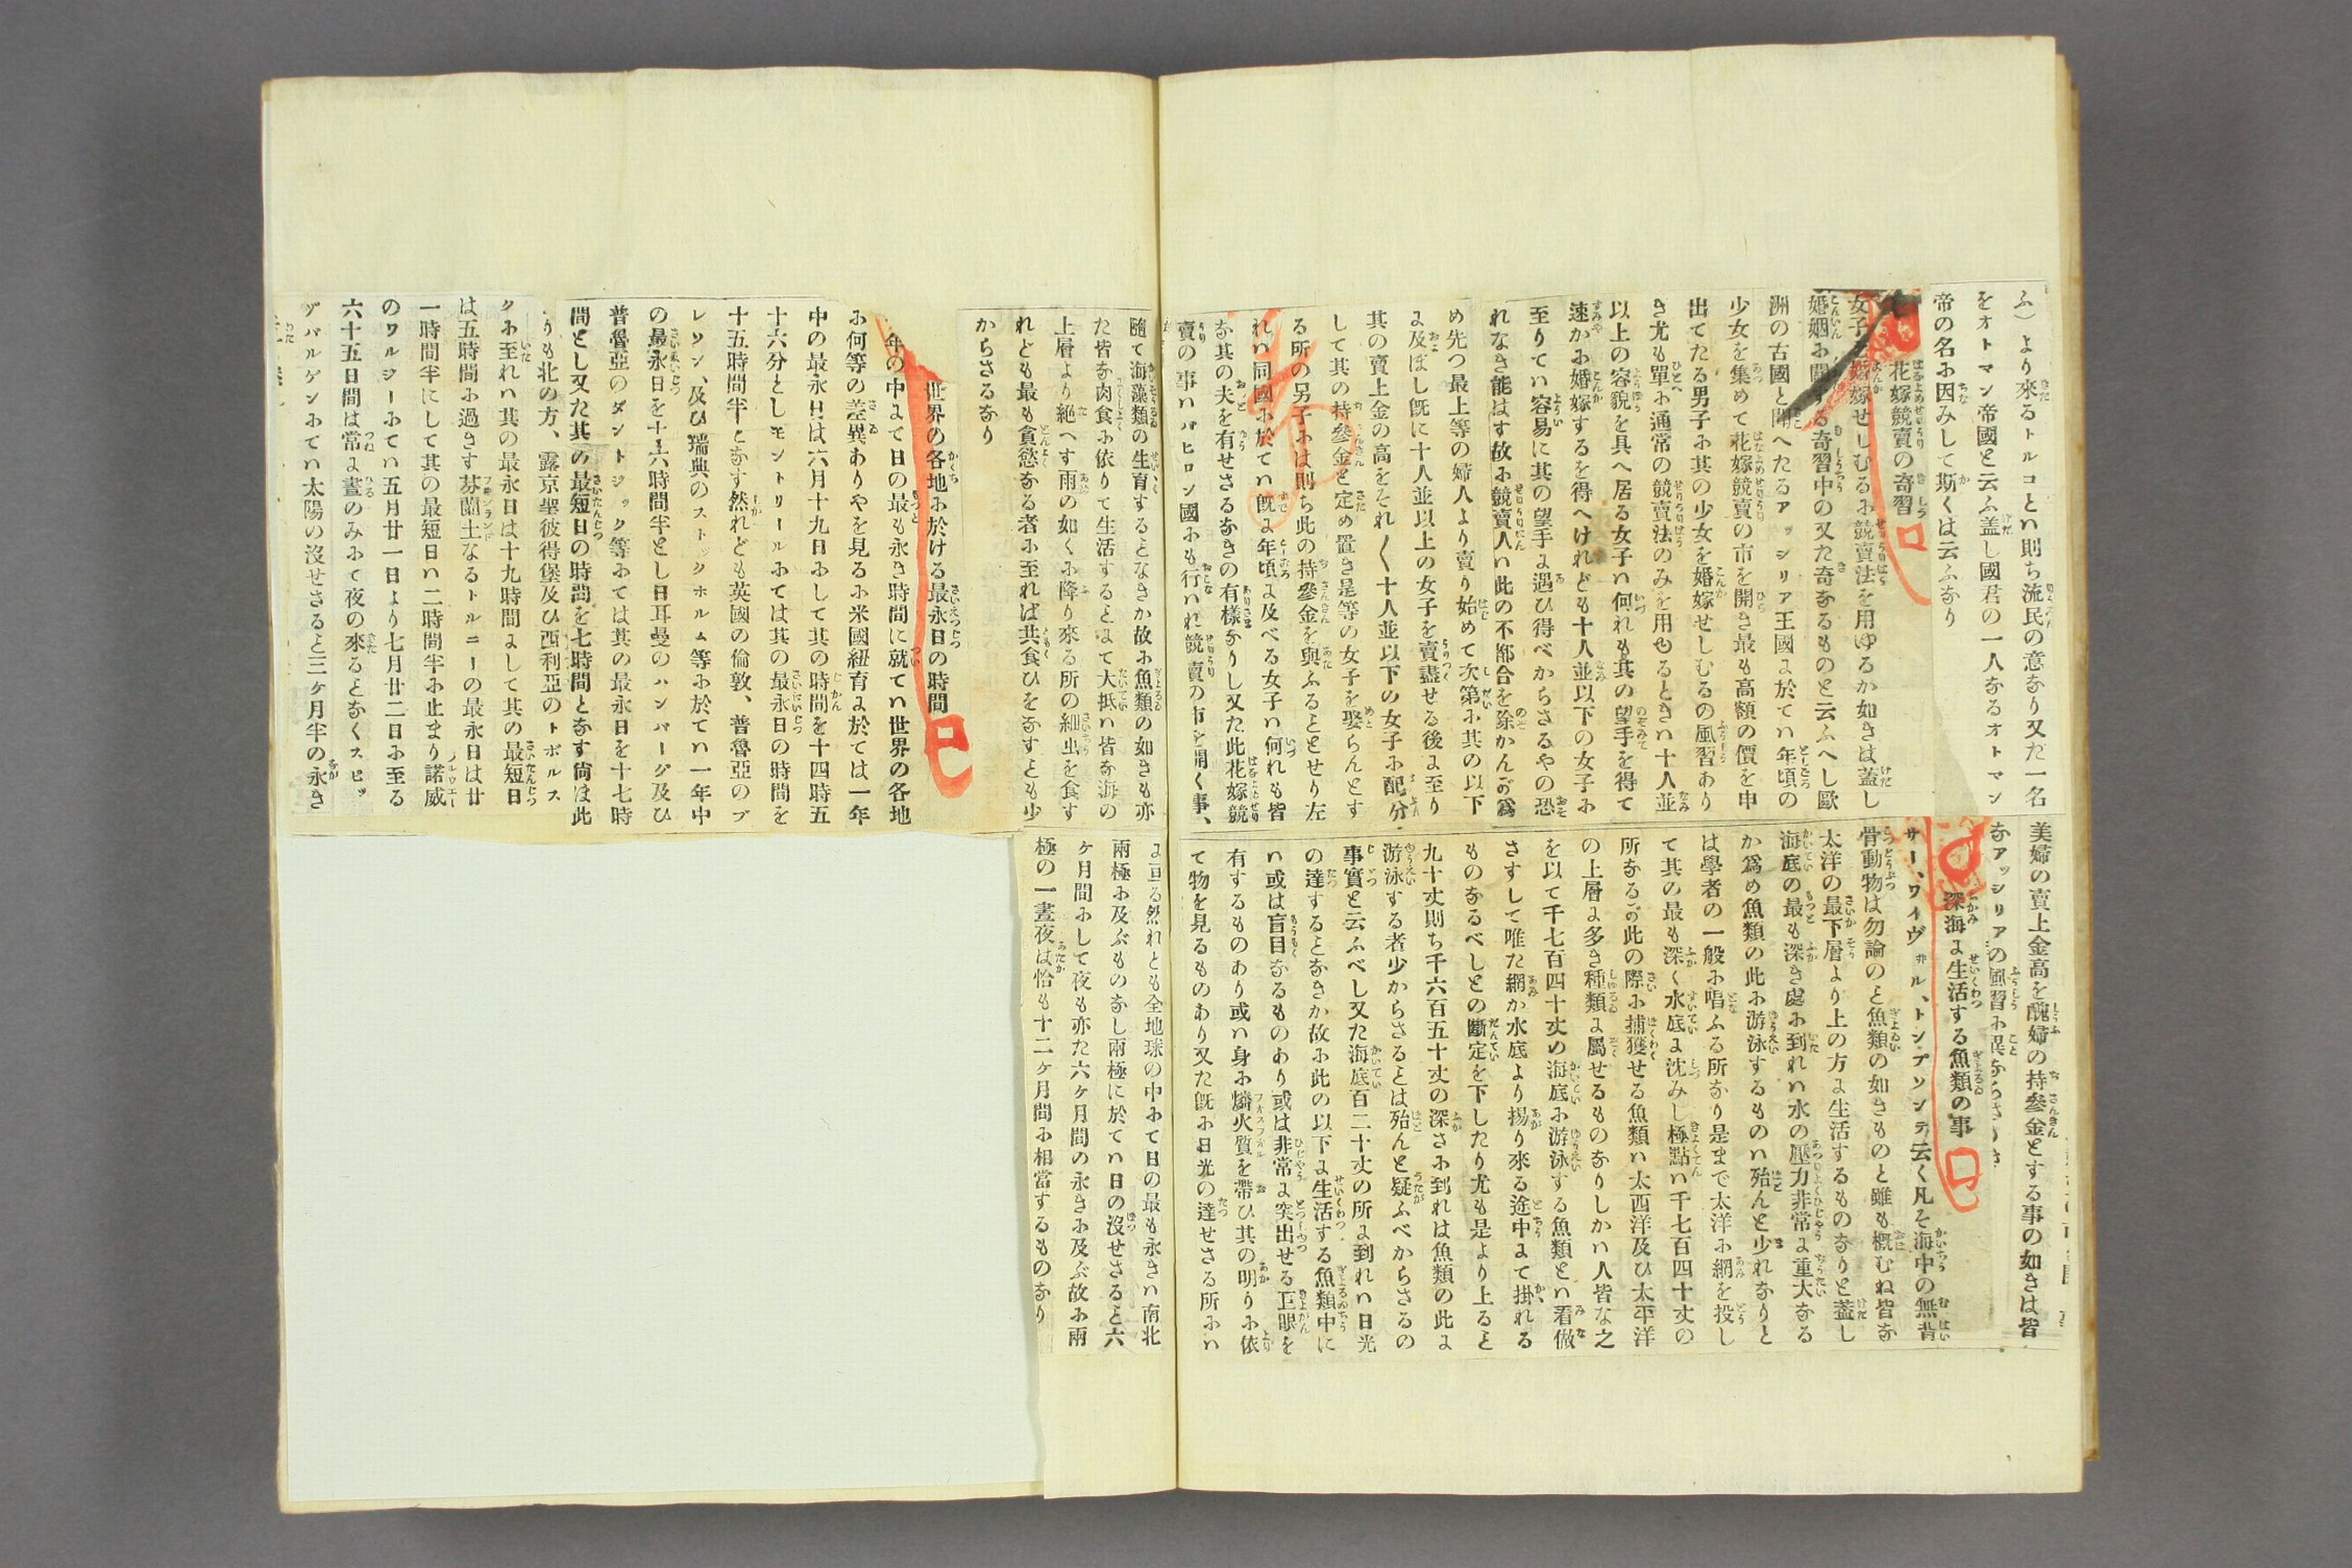 ふ）より來るトルコとハ則ち流民の意なり又た一名
をオトマン帝國と云ふ盖し國君の一人なるオトマン
帝の名に因みして斯くは云ふなり
花嫁競賣の奇習
女子を婚嫁せしむるに競賣法を用ゆるか如きは盖し
婚姻に關する奇習中の又た奇なるものと云ふへし歐
洲の古國と聞へたるアッシリア王國に於てハ年頃の
少女を集めて花嫁競賣の市を開き最も高額の價を申
出てたる男子に其の少女を婚嫁せしむるの風習あり
き尤も單に通常の競賣法のみを用ゐるときハ十人並
以上の容貌を具へ居る女子ハ何れも其の望手を得て
速かに婚嫁するを得へけれども十人並以下の女子に
至りてハ容易に其の望手に遇ひ得べからさるやの恐
れなき能はす故に競賣人ハ此の不都合を除かんが爲
め先つ最上等の婦人より賣り始めて次第に其の以下
に及ぼし既に十人並以上の女子を賣盡せる後に至り
其の賣上金の高をそれ〱十人並以下の女子に配分
して其の持參金と定め置き是等の女子を娶らんとす
る所の男子には則ち此の持參金を與ふるとせり左
れハ同國に於てハ既に年頃に及べる女子ハ何れも皆
な其の夫を有せさるなきの有樣なりし又た此花嫁競
賣の事ハバヒロン國にも行ハれ競賣の市を開く事、
美婦の賣上金高を醜婦の持參金とする事の如きは皆
なアッシリアの風習に異ならさりき
深海に生活する魚類の事
サー、ワイヴヰル、トンプソン云く凡そ海中の無背
骨動物は勿論のと魚類の如きものと雖も概むね皆な
太洋の最下層より上の方に生活するものなりと盖し
海底の最も深き處に到れハ水の壓力非常に重大なる
か爲め魚類の此に游泳するものハ殆んと少れなりと
は學者の一般に唱ふる所なり是まで太洋に網を投し
て其の最も深く水底に沈みし極點ハ千七百四十丈の
所なるが此の際に捕獲せる魚類ハ太西洋及ひ太平洋
の上層に多き種類に屬せるものなりしかハ人皆な之
を以て千七百四十丈の海底に游泳する魚類とハ看做
さすして唯た網か水底より揚り來る途中にて掛れる
ものなるべしとの斷定を下したり尤も是より上ると
九十丈則ち千六百五十丈の深さに到れは魚類の此に
游泳する者少からさるとは殆んと疑ふべからさるの
事實と云ふべし又た海底百二十丈の所に到れハ日光
の達するとなきか故に此の以下に生活する魚類中に
ハ或は盲目なるものあり或は非常に突出せる巨眼を
有するものあり或ハ身に燐火質を帶ひ其の明りに依
て物を見るものあり又た既に日光の達せさる所にハ
隨て海藻類の生育するとなきか故に魚類の如きも亦
た皆な肉食に依りて生活するとにて大抵ハ皆な海の
上層より絶へす雨の如くに降り來る所の細虫を食す
れども最も貪慾なる者に至れば共食ひをなすとも少
からさるなり
世界の各地に於ける最永日の時間
年の中にて日の最も永き時間に就てハ世界の各地
に何等の差異ありやを見るに米國紐育に於ては一年
中の最永日は六月十九日にして其の時間を十四時五
十六分としモントリールにては其の最永日の時間を
十五時間半となす然れども英國の倫敦、普魯亞のブ
レソン、及ひ瑞典のストックホルム等に於てハ一年中
の最永日を十六時間半とし日耳曼のハンバーグ及ひ
普魯亞のダントジック等にては其の最永日を十七時
間とし又た其の最短日の時間を七時間となす尚は此
りも北の方、露京聖彼得堡及ひ西利亞のトボルス
クに至れハ其の最永日は十九時間にして其の最短日
は五時間に過きす芬蘭土なるトルニーの最永日は廿
一時間半にして其の最短日ハ二時間半に止まり諾威
のワルジーにてハ五月廿一日より七月廿二日に至る
六十五日間は常に晝のみにて夜の來るとなくスピッ
ヅバルゲンにてハ太陽の沒せさると三ヶ月半の永き
に亘る然れとも全地球の中にて日の最も永きハ南北
兩極に及ぶものなし兩極に於てハ日の沒せさると六
ヶ月間にして夜も亦た六ヶ月間の永きに及ぶ故に兩
極の一晝夜は恰も十二ヶ月間に相當するものなり